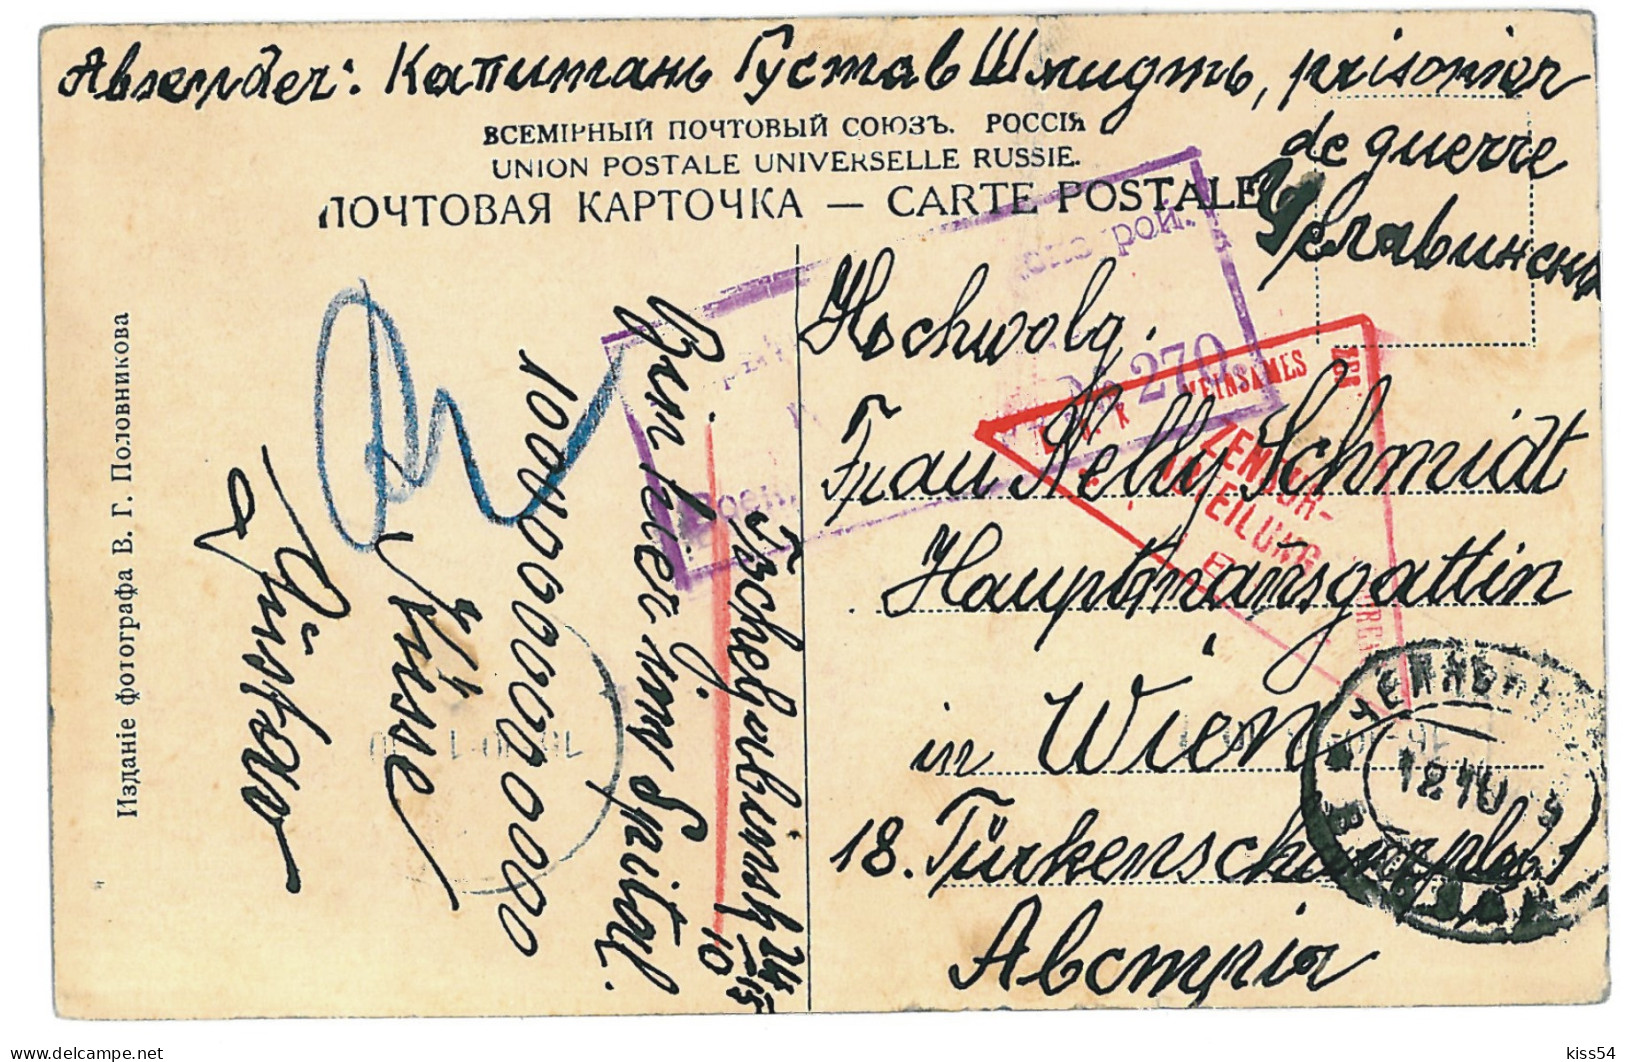 Absender: Капитань Густав Шмидть, prisonier
de guerre
Челявинскъ
ВСЕМІРНЫЙ ПОЧТОВЫЙ СОЮЗЪ. РОССІЯ
UNION POSTALE UNIVERSELLE RUSSIE.
ПОЧТОВАЯ КАРТОЧКА — CARTE POSTALE
Hochwolg.
Frau Nelly Schmidt
Hauptmansgattin
in Wien
18. Türkenschanzplatz 1
Австрія
Tscheljabinsk 24/10 15
Bin hier im Spital.
1000000000000
Küsse
Gustav
Изданіе фотографа В. Г. Половникова
№ 270
ZENSUR-
ABTEILUNG
12 10 15
delcampe.net
kiss54